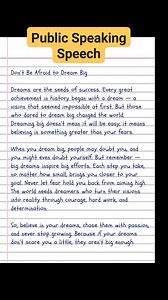 Public Speaking
Speech
Don't Be Afraid to Dream Big
Dreams are the seeds of success. Every great
achievement in history began with a dream — a
vision that seemed impossible at first. But those
who dared to dream big changed the world.
Dreaming big doesn't mean it will be easy; it means
believing in something greater than your fears.
When you dream big, people may doubt you, and
you might even doubt yourself. But remember —
big dreams inspire big efforts. Each step you take,
no matter how small, brings you closer to your
goal. Never let fear hold you back from aiming high.
The world needs dreamers who turn their visions
into reality through courage, hard work, and
determination.
So, believe in your dreams, chase them with passion,
and never stop growing. Because if your dreams
don't scare you a little, they aren't big enough.